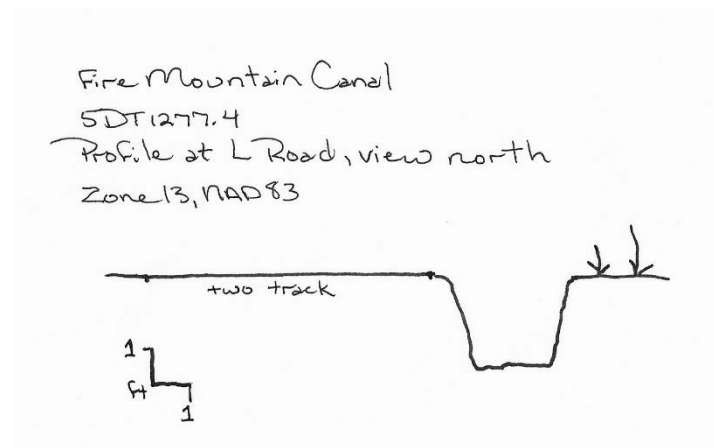 Fire Mountain Canal
5DT1277.4
Profile at L Road, view north
Zone 13, NAD83
two track
1
ft
1